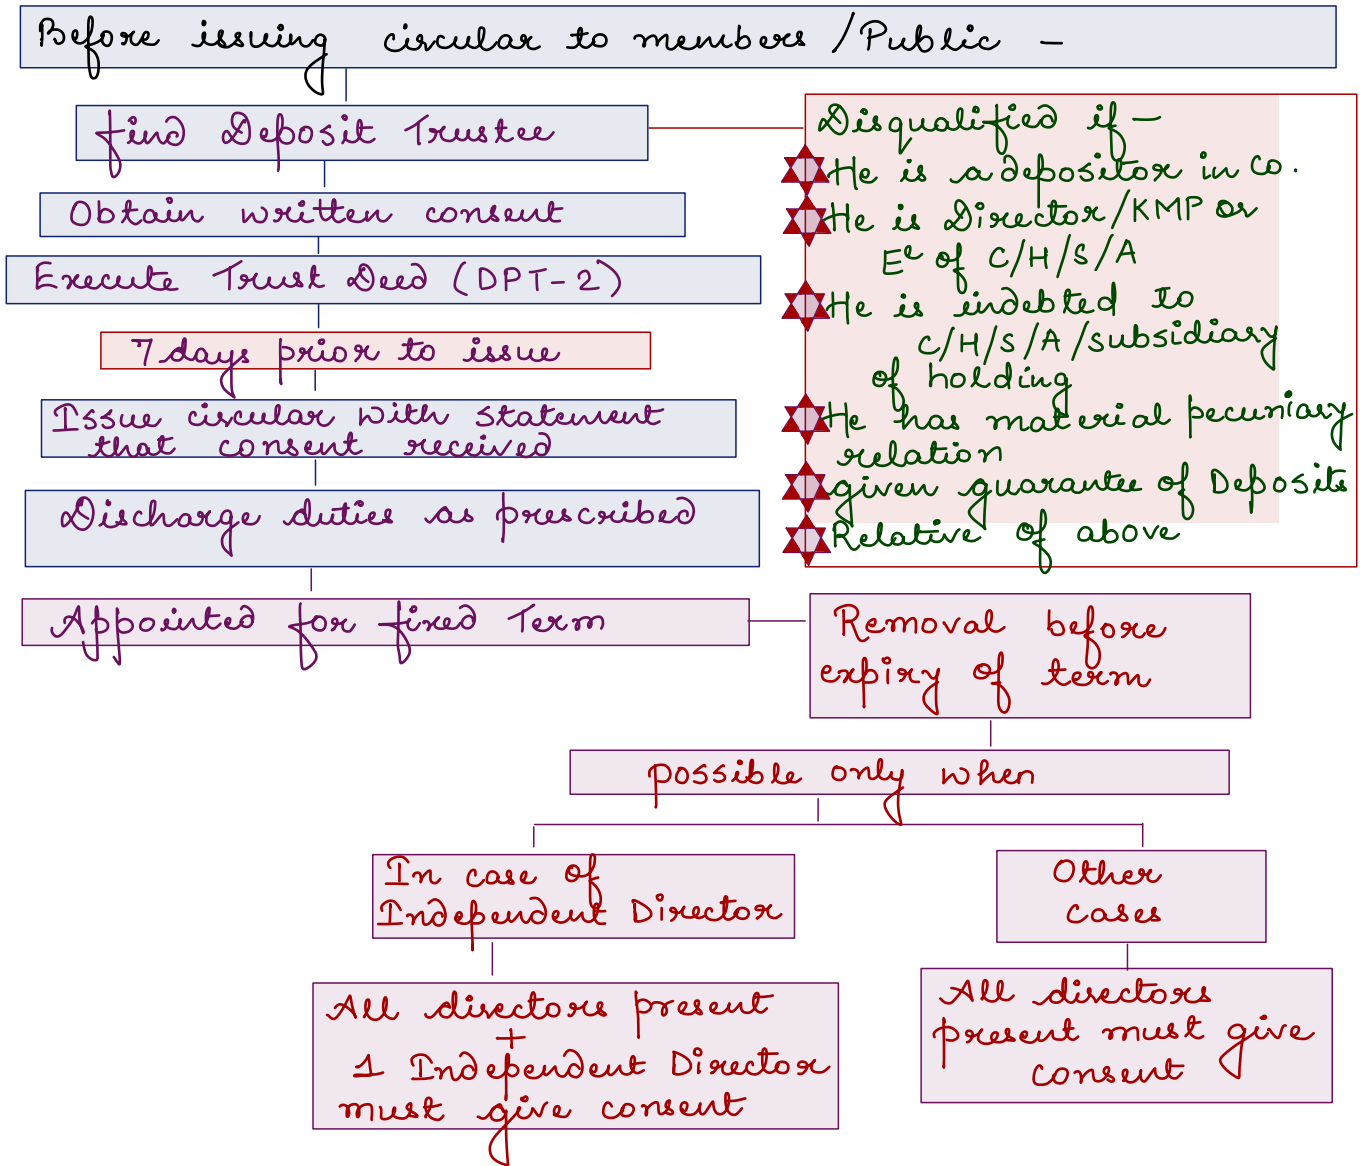 Before issuing circular to members /Public -
find Deposit Trustee
Obtain written consent
Execute Trust Deed (DPT-2)
7 days prior to issue
Issue circular with statement
that consent received
Discharge duties as prescribed
Appointed for fixed Term
Disqualified if -
He is a depositor in co.
He is Director/KMP or
Ee of C/H/S/A
He is indebted to
C/H/S/A/subsidiary
of holding
He has material pecuniary
relation
given guarantee of Deposits
Relative of above
Removal before
expiry of term
possible only when
In case of
Independent Director
All directors present
+
1 Independent Director
must give consent
Other
cases
All directors
present must give
consent